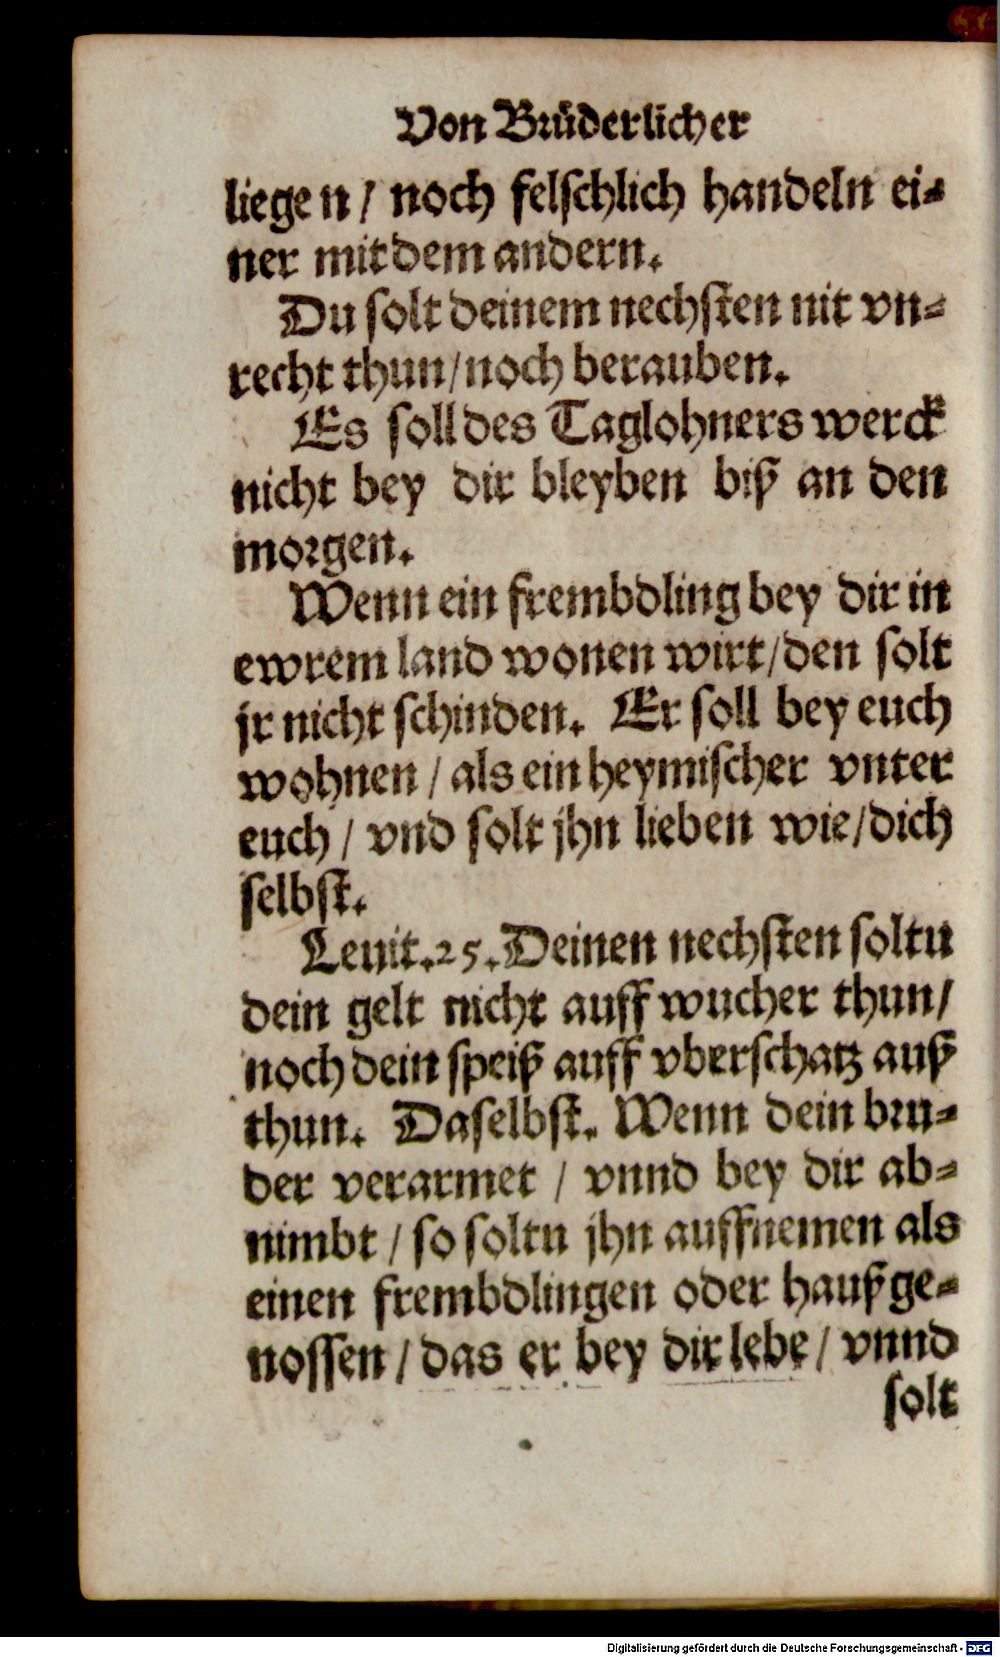 Von Brüderlicher
liegen / noch felschlich handeln ei-
ner mit dem andern.
Du solt deinem nechsten nit vn-
recht thun / noch berauben.
Es soll des Taglohners werck
nicht bey dir bleyben biß an den
morgen.
Wenn ein frembdling bey dir in
ewrem land wonen wirt / den solt
jr nicht schinden. Er soll bey euch
wohnen / als ein heymischer vnter
euch / vnd solt jhn lieben wie / dich
selbst.
Leuit. 25. Deinen nechsten soltu
dein gelt nicht auff wucher thun /
noch dein speiß auff vberschatz auß
thun. Daselbst. Wenn dein bru-
der verarmet / vnnd bey dir ab-
nimbt / so soltu jhn auffnemen als
einen frembdlingen oder haußge-
nossen / das er bey dir lebe / vnnd
solt
Digitalisierung gefördert durch die Deutsche Forschungsgemeinschaft - DFG